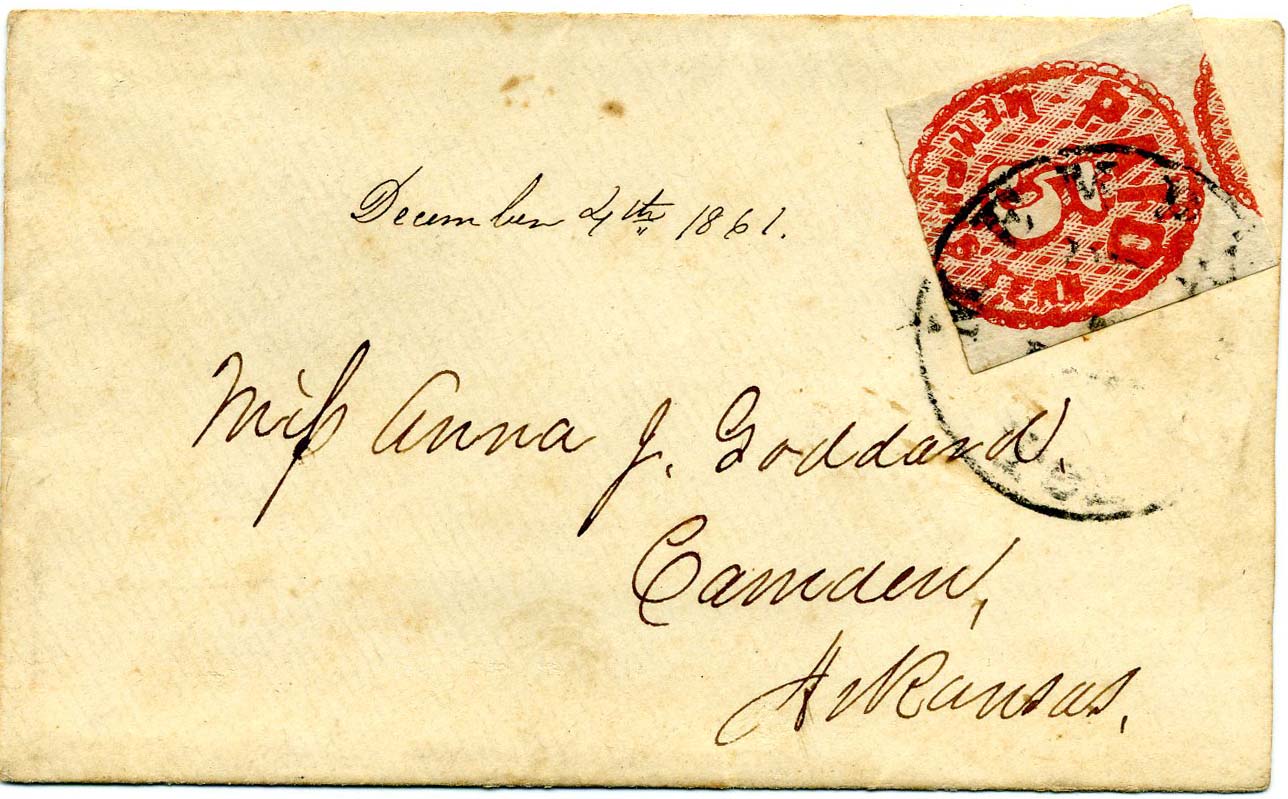 PAID
MEMPHIS
TENN
5
December 4th 1861.
Miss Anna J. Goddard
Camden,
Arkansas.